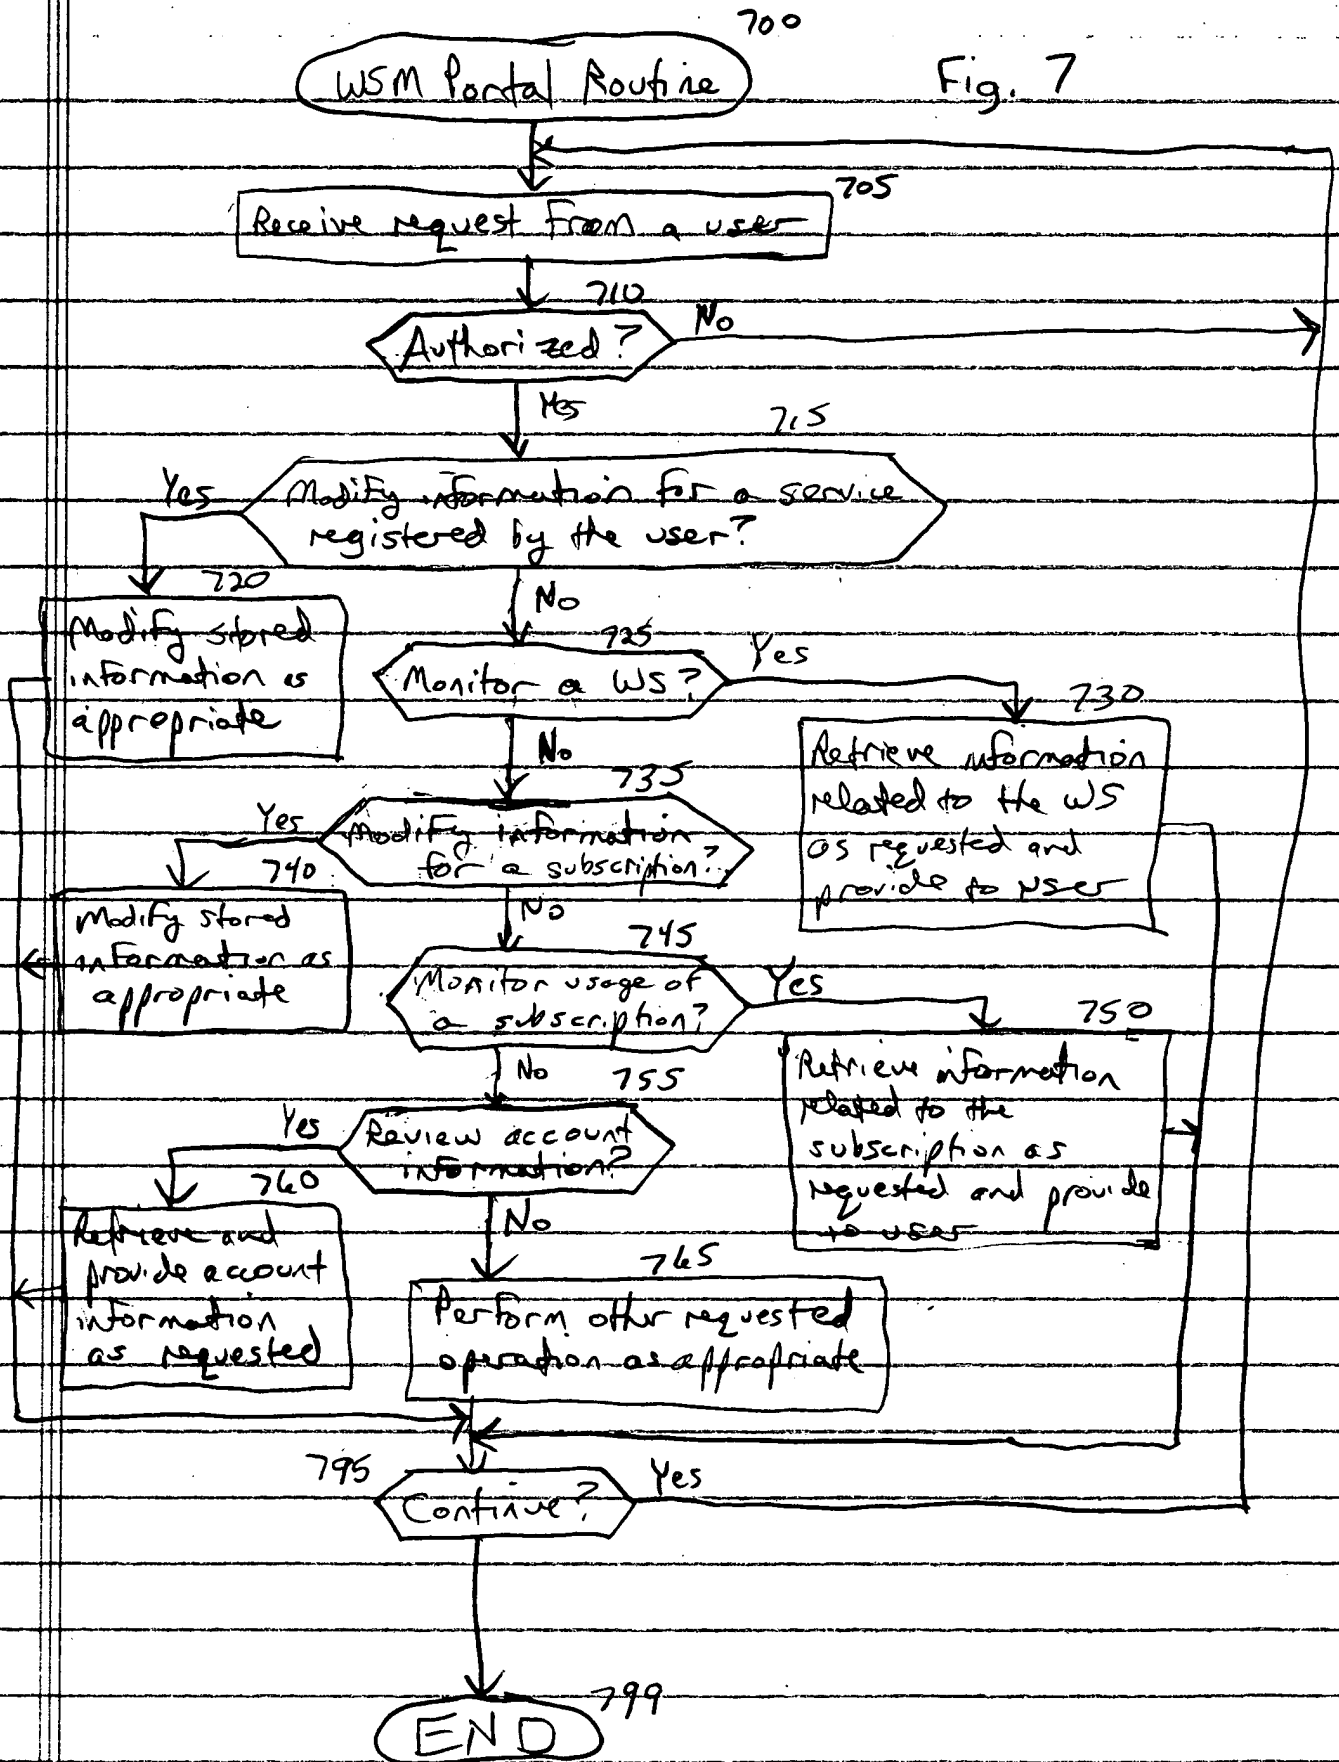 700
WSM Portal Routine
Fig. 7
705
Receive request from a user
710
Authorized?
No
Yes
715
Yes
Modify information for a service
registered by the user?
720
No
Modify stored
information as
appropriate
725
Monitor a WS?
Yes
730
No
Retrieve information
related to the WS
as requested and
provide to user
735
Yes
Modify information
for a subscription?
740
No
Modify stored
information as
appropriate
745
Monitor usage of
a subscription?
Yes
750
No
Retrieve information
related to the
subscription as
requested and provide
to user
755
Yes
Review account
information?
760
No
Retrieve and
provide account
information
as requested
765
Perform other requested
operation as appropriate
795
Continue?
Yes
799
END